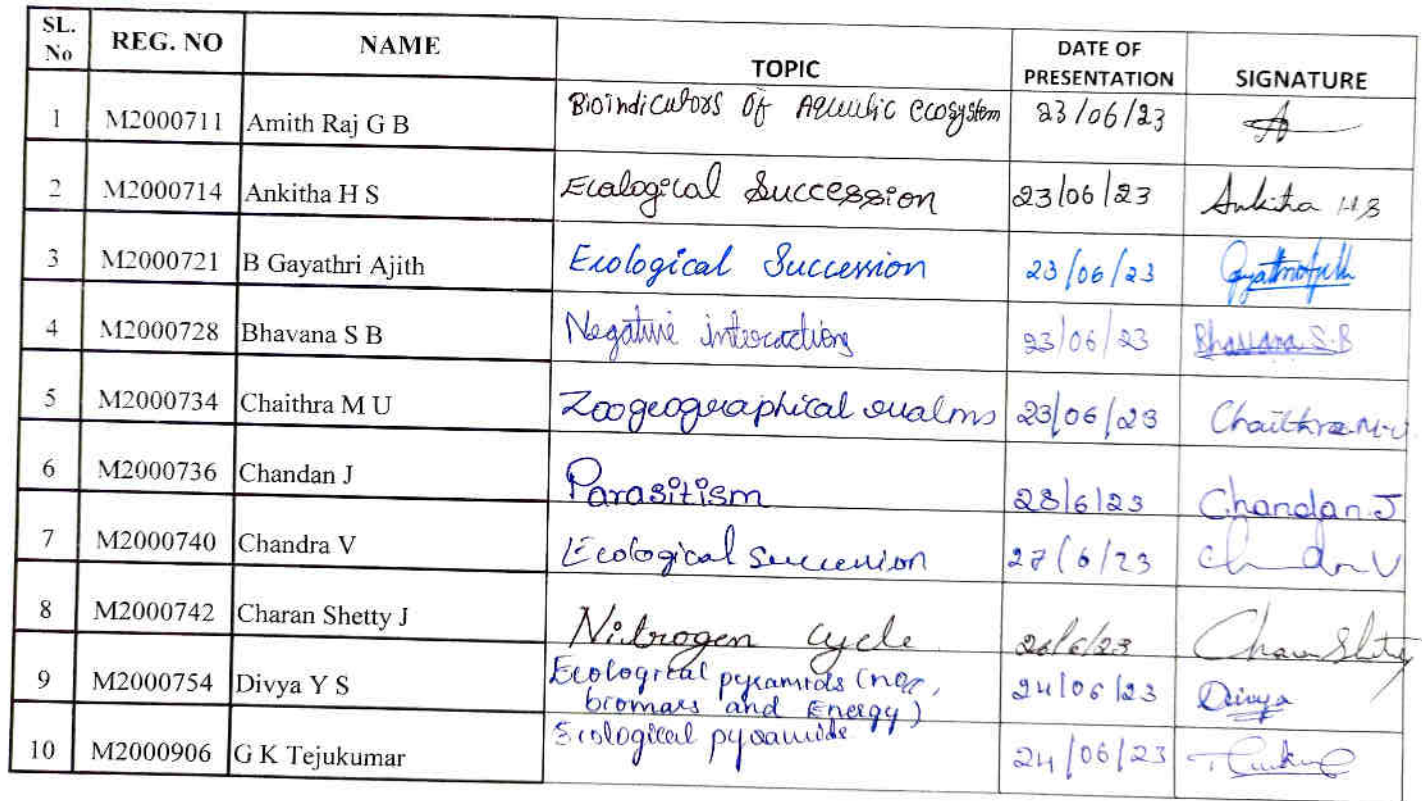 SL. No REG. NO NAME TOPIC DATE OF PRESENTATION SIGNATURE
1 M2000711 Amith Raj G B Bioindicators Of Aquatic ecosystem 23/06/23
2 M2000714 Ankitha H S Ecological Succession 23/06/23 Ankitha H S
3 M2000721 B Gayathri Ajith Ecological Succession 23/06/23
4 M2000728 Bhavana S B Negative interactions 23/06/23 Bhavana S.B
5 M2000734 Chaithra M U Zoogeographical realms 23/06/23 Chaithra M.U.
6 M2000736 Chandan J Parasitism 28/6/23 Chandan.J
7 M2000740 Chandra V Ecological Succession 27/6/23
8 M2000742 Charan Shetty J Nitrogen cycle 26/6/23
9 M2000754 Divya Y S Ecological pyramids (no,
biomass and Energy) 24/06/23 Divya
10 M2000906 G K Tejukumar Ecological pyramide 24/06/23